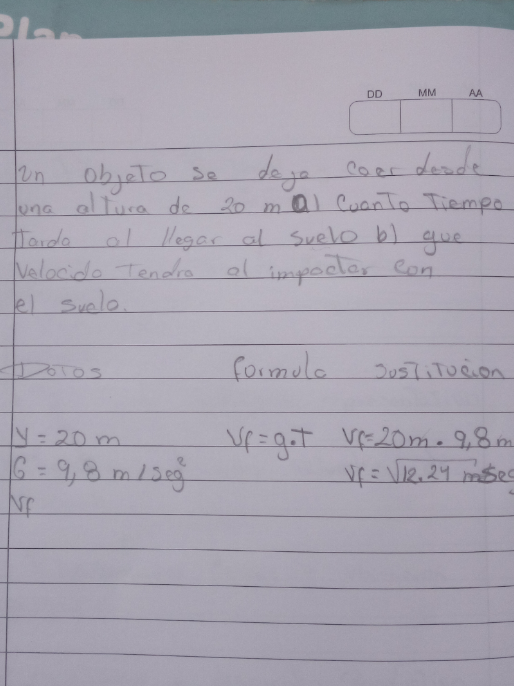 Plan
DD MM AA
Un objeto se deja caer desde
una altura de 20 m a) Cuanto Tiempo
Tarda al llegar al suelo b) que
Velocida Tendra al impactar con
el suelo.
Datos formula sustitucion
Y = 20 m Vf = g.T Vf=20m . 9,8 m
G = 9,8 m/seg² Vf = √12.24 mseg
Vf